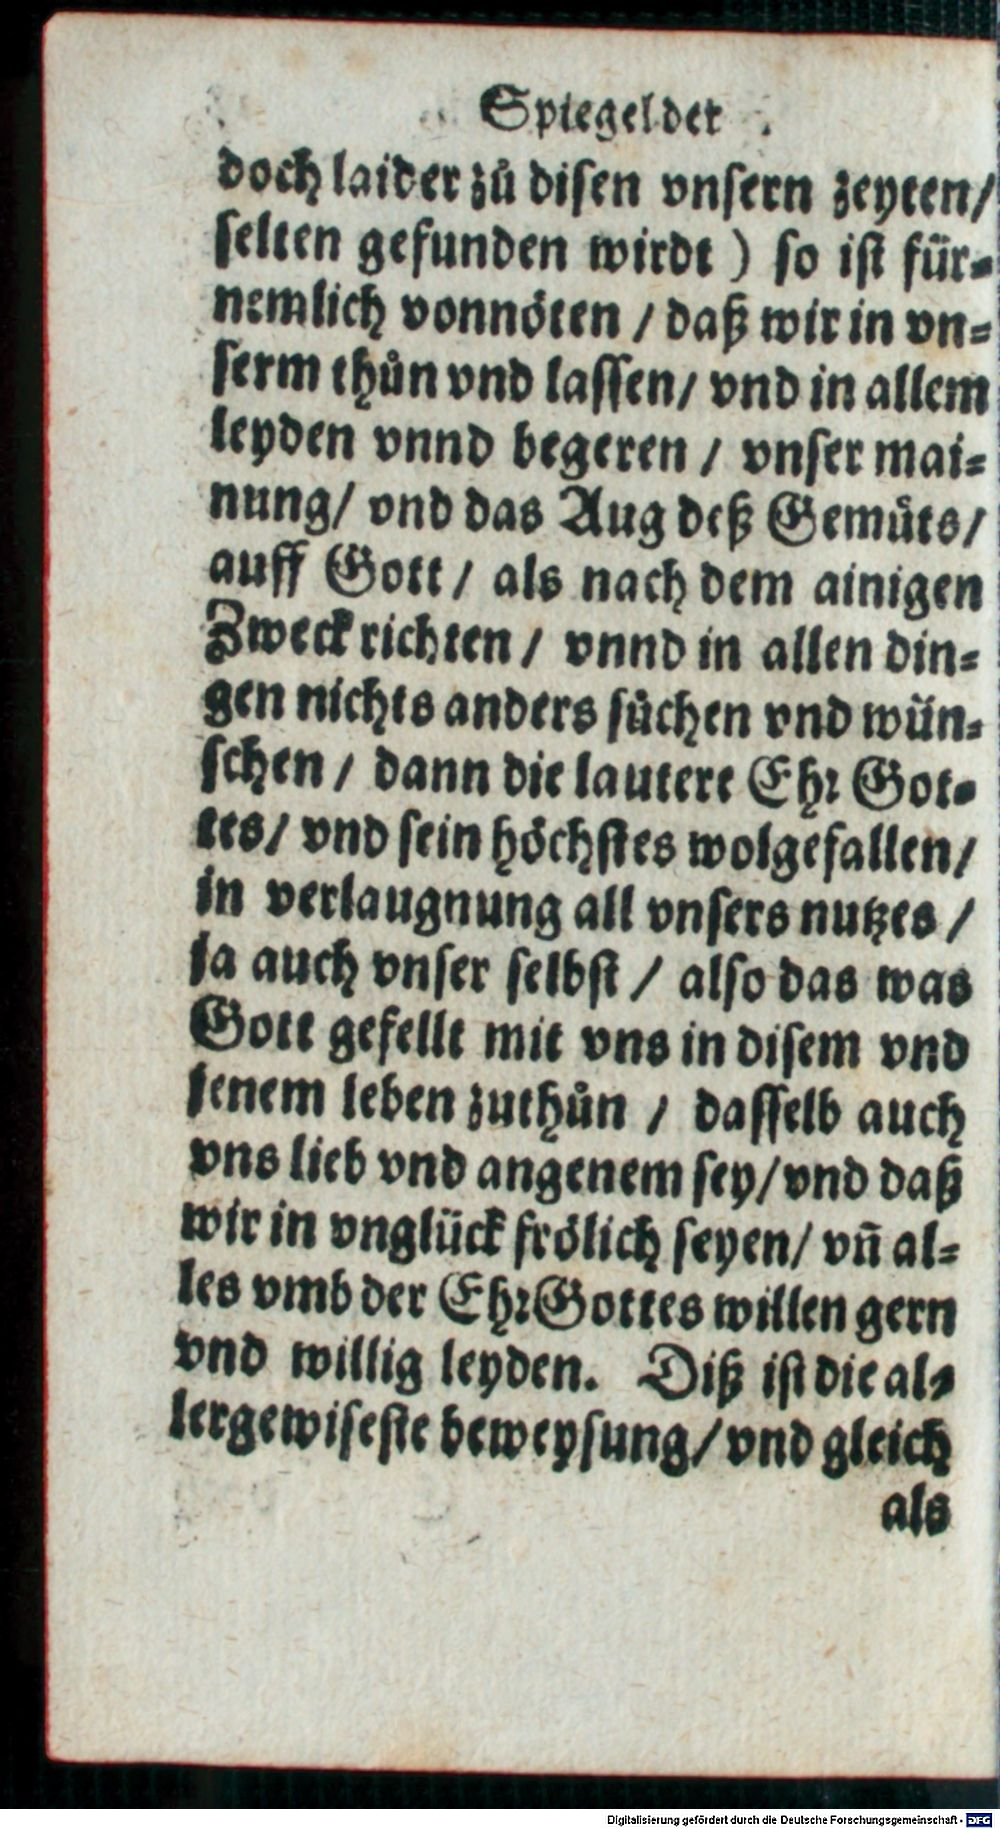 Spiegel der
doch laider zů disen vnsern zeyten/
selten gefunden wirdt ) so ist für-
nemlich vonnöten / daß wir in vn-
serm thůn vnd lassen/ vnd in allem
leyden vnnd begeren / vnser mai-
nung/ vnd das Aug deß Gemüts/
auff Gott / als nach dem ainigen
Zweck richten / vnnd in allen din-
gen nichts anders süchen vnd wün-
schen / dann die lautere Ehr Got-
tes/ vnd sein höchstes wolgefallen/
in verlaugnung all vnsers nutzes /
ja auch vnser selbst / also das was
Gott gefellt mit vns in disem vnd
jenem leben zuthůn / dasselb auch
vns lieb vnd angenem sey/ vnd daß
wir in vnglück frölich seyen/ vñ al-
les vmb der Ehr Gottes willen gern
vnd willig leyden. Diß ist die al-
lergewiseste beweysung/ vnd gleich
als
Digitalisierung gefördert durch die Deutsche Forschungsgemeinschaft - DFG